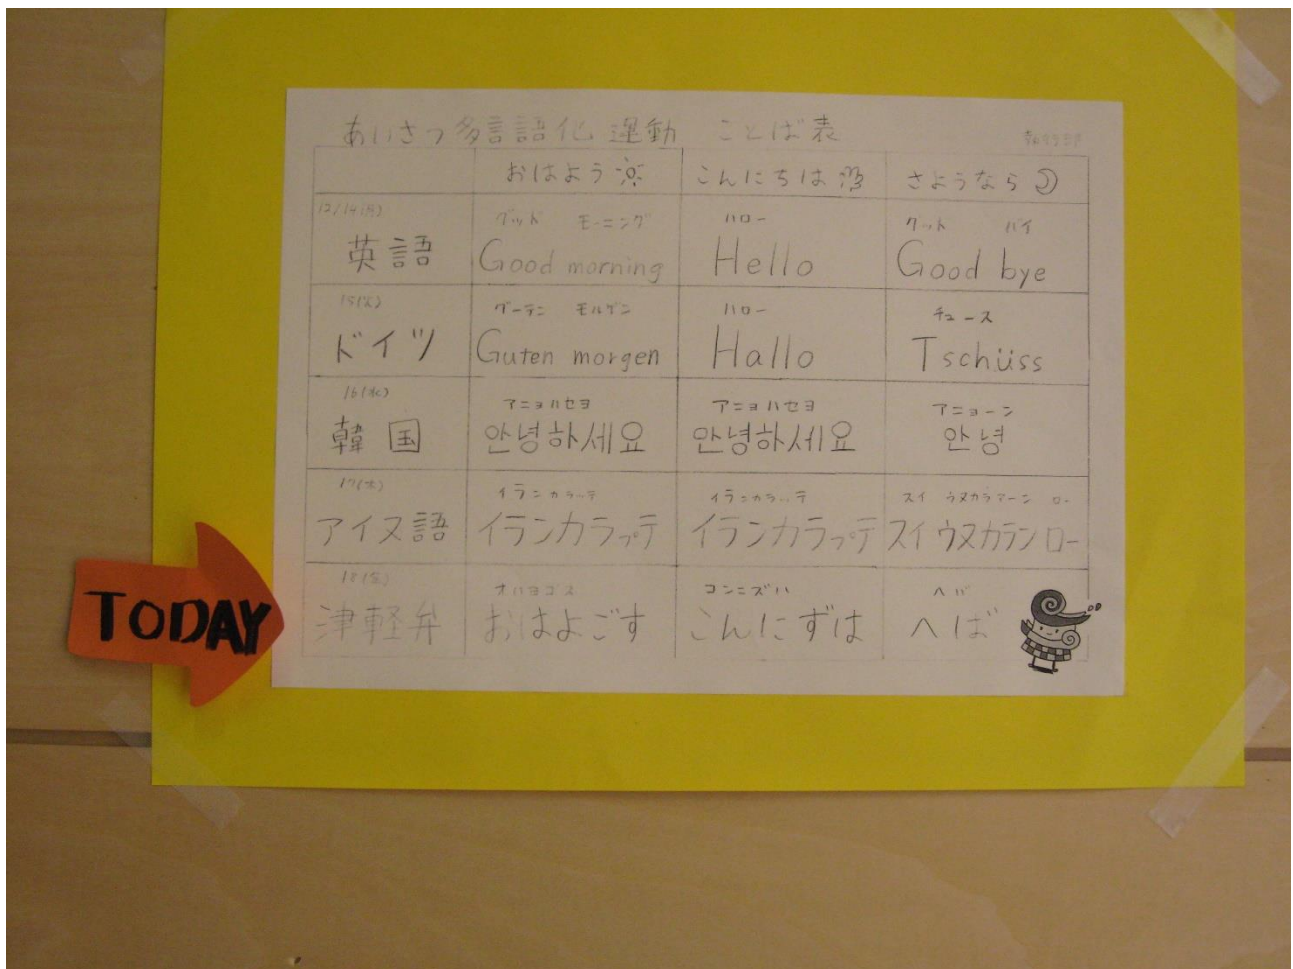 あいさつ多言語化運動 ことば表
おはよう こんにちは さようなら
12/14(月)
英語
グッド モーニング
Good morning
ハロー
Hello
グット バイ
Good bye
15(火)
ドイツ
グーテン モルゲン
Guten morgen
ハロー
Hallo
チュース
Tschüss
16(水)
韓国
アニョハセヨ
안녕하세요
アニョハセヨ
안녕하세요
アニョーン
안녕
17(木)
アイヌ語
イランカラッテ
イランカラㇷ゚テ
イランカラッテ
イランカラㇷ゚テ
スイ ウヌカラマーン ロー
スイ ウヌカラン ロー
18(金)
津軽弁
オハヨゴス
おはよごす
コンニズハ
こんにずは
ヘバ
へば
TODAY